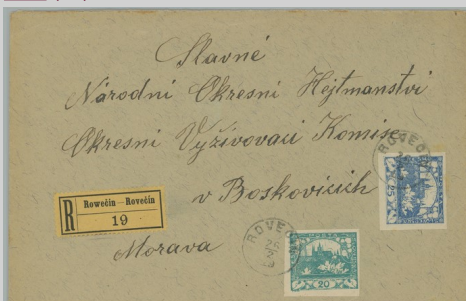 Slavné
Národní Okresní Hejtmanství
Okresní Vyživovací Komise
v Boskovicích
Morava
R
Rowečin – Rovečín
19
ROVEČ
ROVEČ
25
20